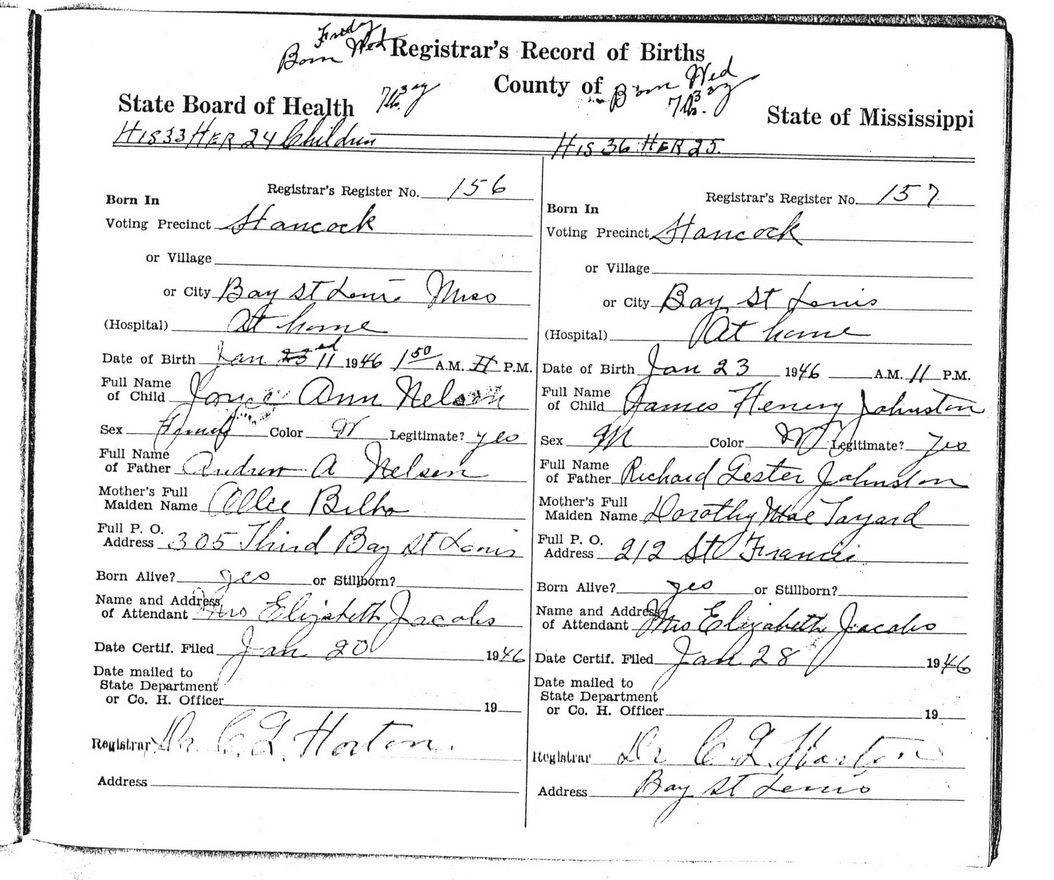 Friday
Born Wed
Registrar's Record of Births
County of
Born Wed
State Board of Health
State of Mississippi
HIS 33 HER 24 Children
HIS 36 HER 25.
Registrar's Register No. 156
Born In
Voting Precinct Hancock
or Village
or City Bay St Louis Miss
(Hospital) At home
Date of Birth Jan 11 1946 1 50 A.M. P.M.
Full Name
of Child Ann Nelson
Sex Color W Legitimate? yes
Full Name
of Father Andrew A Nelson
Mother's Full
Maiden Name Ollie Bilbo
Full P. O.
Address 305 Third Bay St Louis
Born Alive? yes or Stillborn?
Name and Address
of Attendant Mrs Elizabeth Jacobs
Date Certif. Filed Jan 20 1946
Date mailed to
State Department
or Co. H. Officer 19
Registrar Dr. C. L. Horton.
Address
Registrar's Register No. 157
Born In
Voting Precinct Hancock
or Village
or City Bay St Louis
(Hospital) At home
Date of Birth Jan 23 1946 A.M. 11 P.M.
Full Name
of Child James Henery Johnston
Sex M Color W Legitimate? Yes
Full Name
of Father Richard Lester Johnston
Mother's Full
Maiden Name Dorothy Mae
Full P. O.
Address 212 St Francis
Born Alive? yes or Stillborn?
Name and Address
of Attendant Mrs Elizabeth Jacobs
Date Certif. Filed Jan 28 1946
Date mailed to
State Department
or Co. H. Officer 19
Registrar Dr C L Horton
Address Bay St Louis